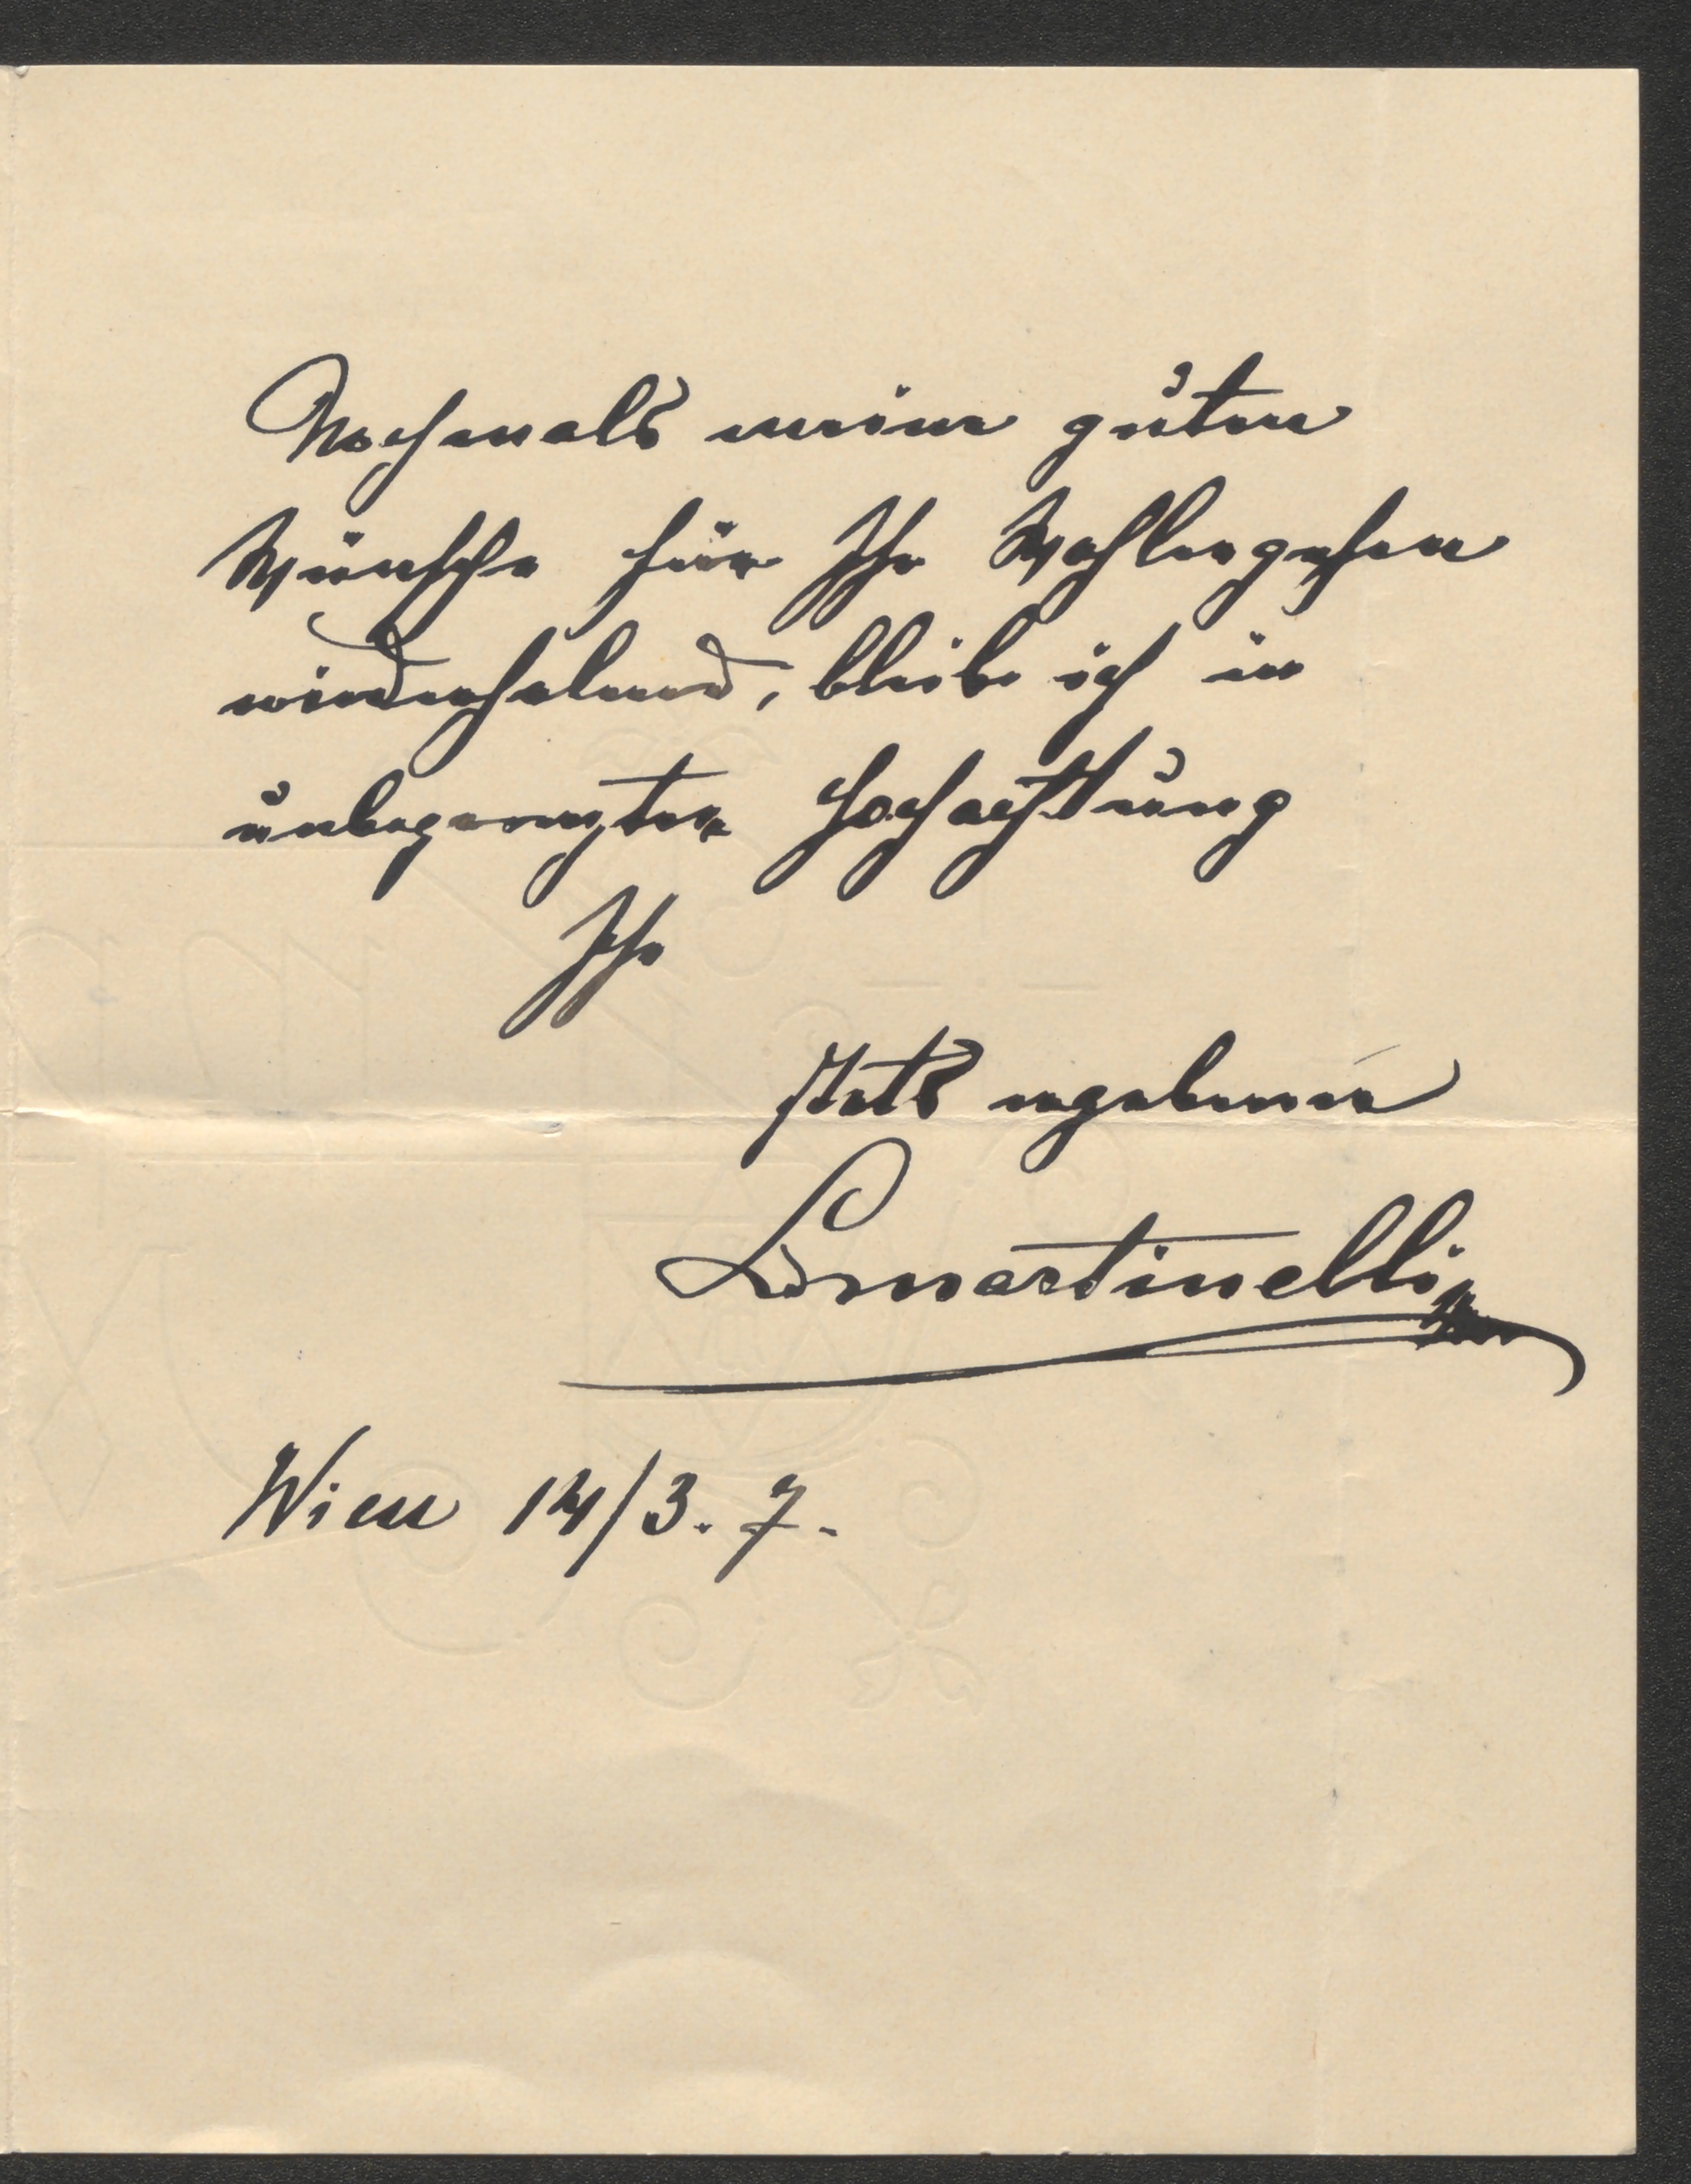 Nochmals meine guten
Wünsche für Ihr Wohlergehen
wiederholend, bleibe ich in
unbegrenzter Hochachtung
Ihr
stets ergebener
LMartinelli
Wien 14/3. 7.